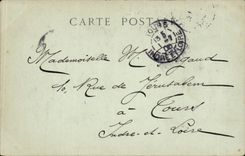 CARTE POSTALE
TOURS
Mademoiselle
4, Rue de Jérusalem
à
Tours
Indre-et-Loire